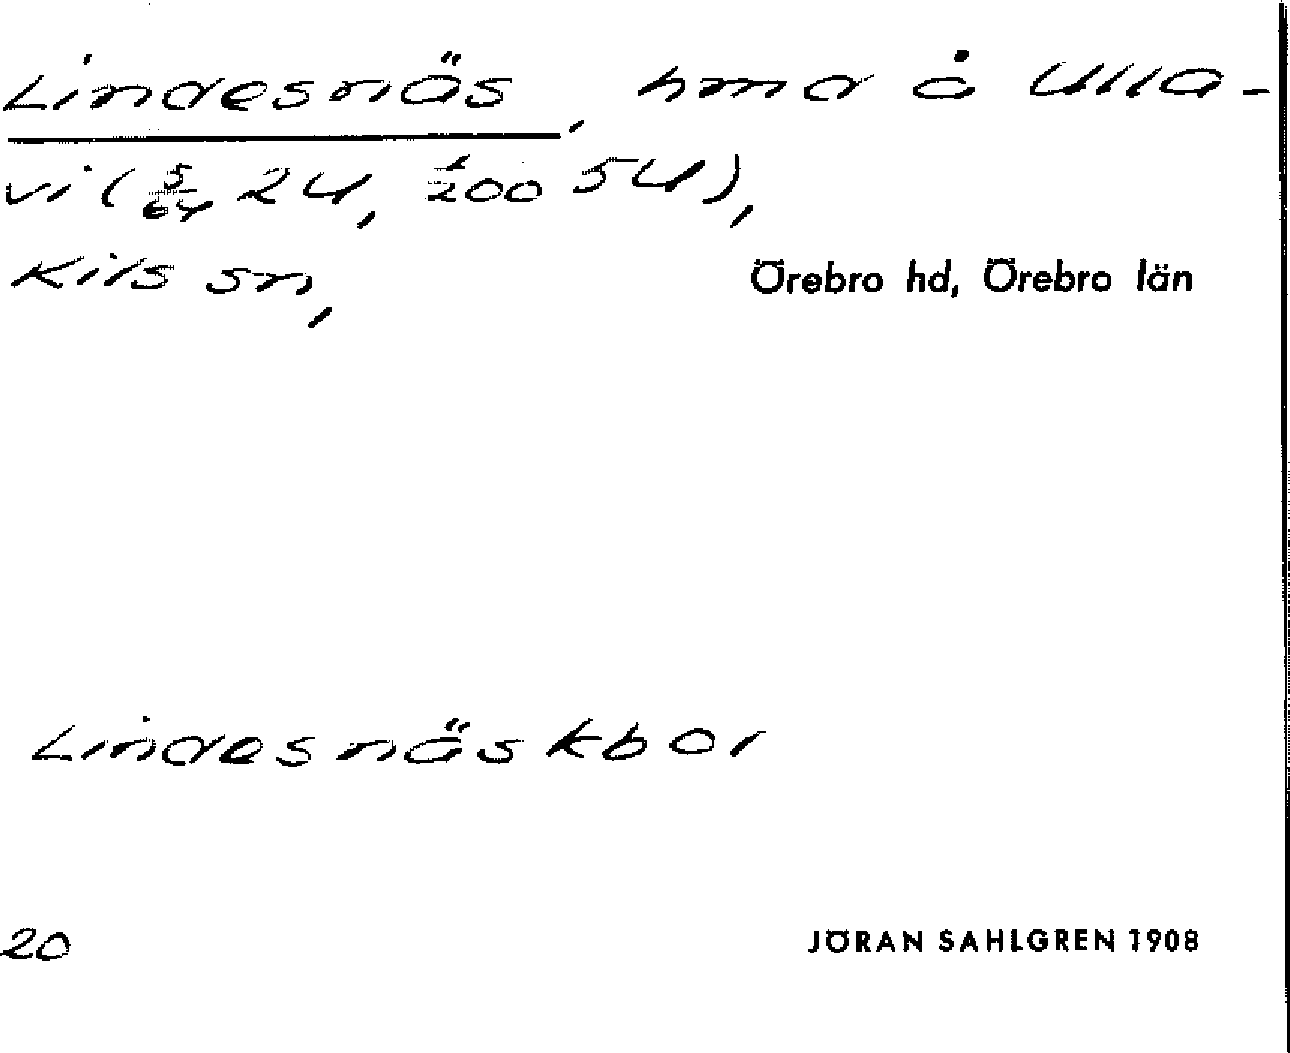 Lindesnäs, hmd å Ulla-
vi (5/64 24, 1/200 54),
Kils sn, Örebro hd, Örebro län
Lindesnäs kbol
20 JÖRAN SAHLGREN 1908